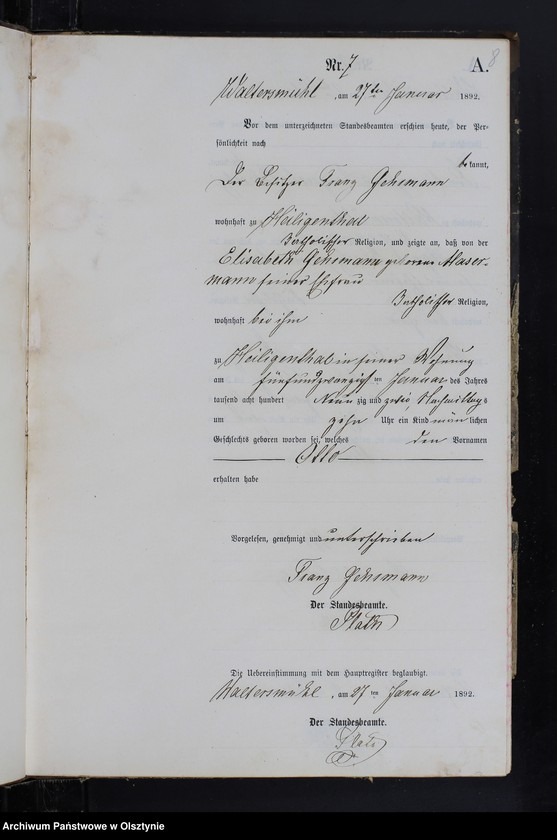 Nr. 7 A. 8
Waltersmühl, am 27ten Januar 1892.
Vor dem unterzeichneten Standesbeamten erschien heute, der Per-
sönlichkeit nach
bekannt,
Der Besitzer Franz Gehrmann
wohnhaft zu Heiligenthal
katholischer Religion, und zeigte an, daß von der
Elisabeth Gehrmann geborene Maser-
mann seiner Ehefrau
katholischer Religion,
wohnhaft bei ihm
zu Heiligenthal in seiner Wohnung
am fünfundzwanzigsten Januar des Jahres
tausend acht hundert Neunzig und zwei, Nachmittags
um zehn Uhr ein Kind männlichen
Geschlechts geboren worden sei, welches den Vornamen
Otto
erhalten habe
Vorgelesen, genehmigt und unterschrieben
Franz Gehrmann
Der Standesbeamte.
Die Uebereinstimmung mit dem Hauptregister beglaubigt.
Waltersmühl, am 27ten Januar 1892.
Der Standesbeamte.
Archiwum Państwowe w Olsztynie